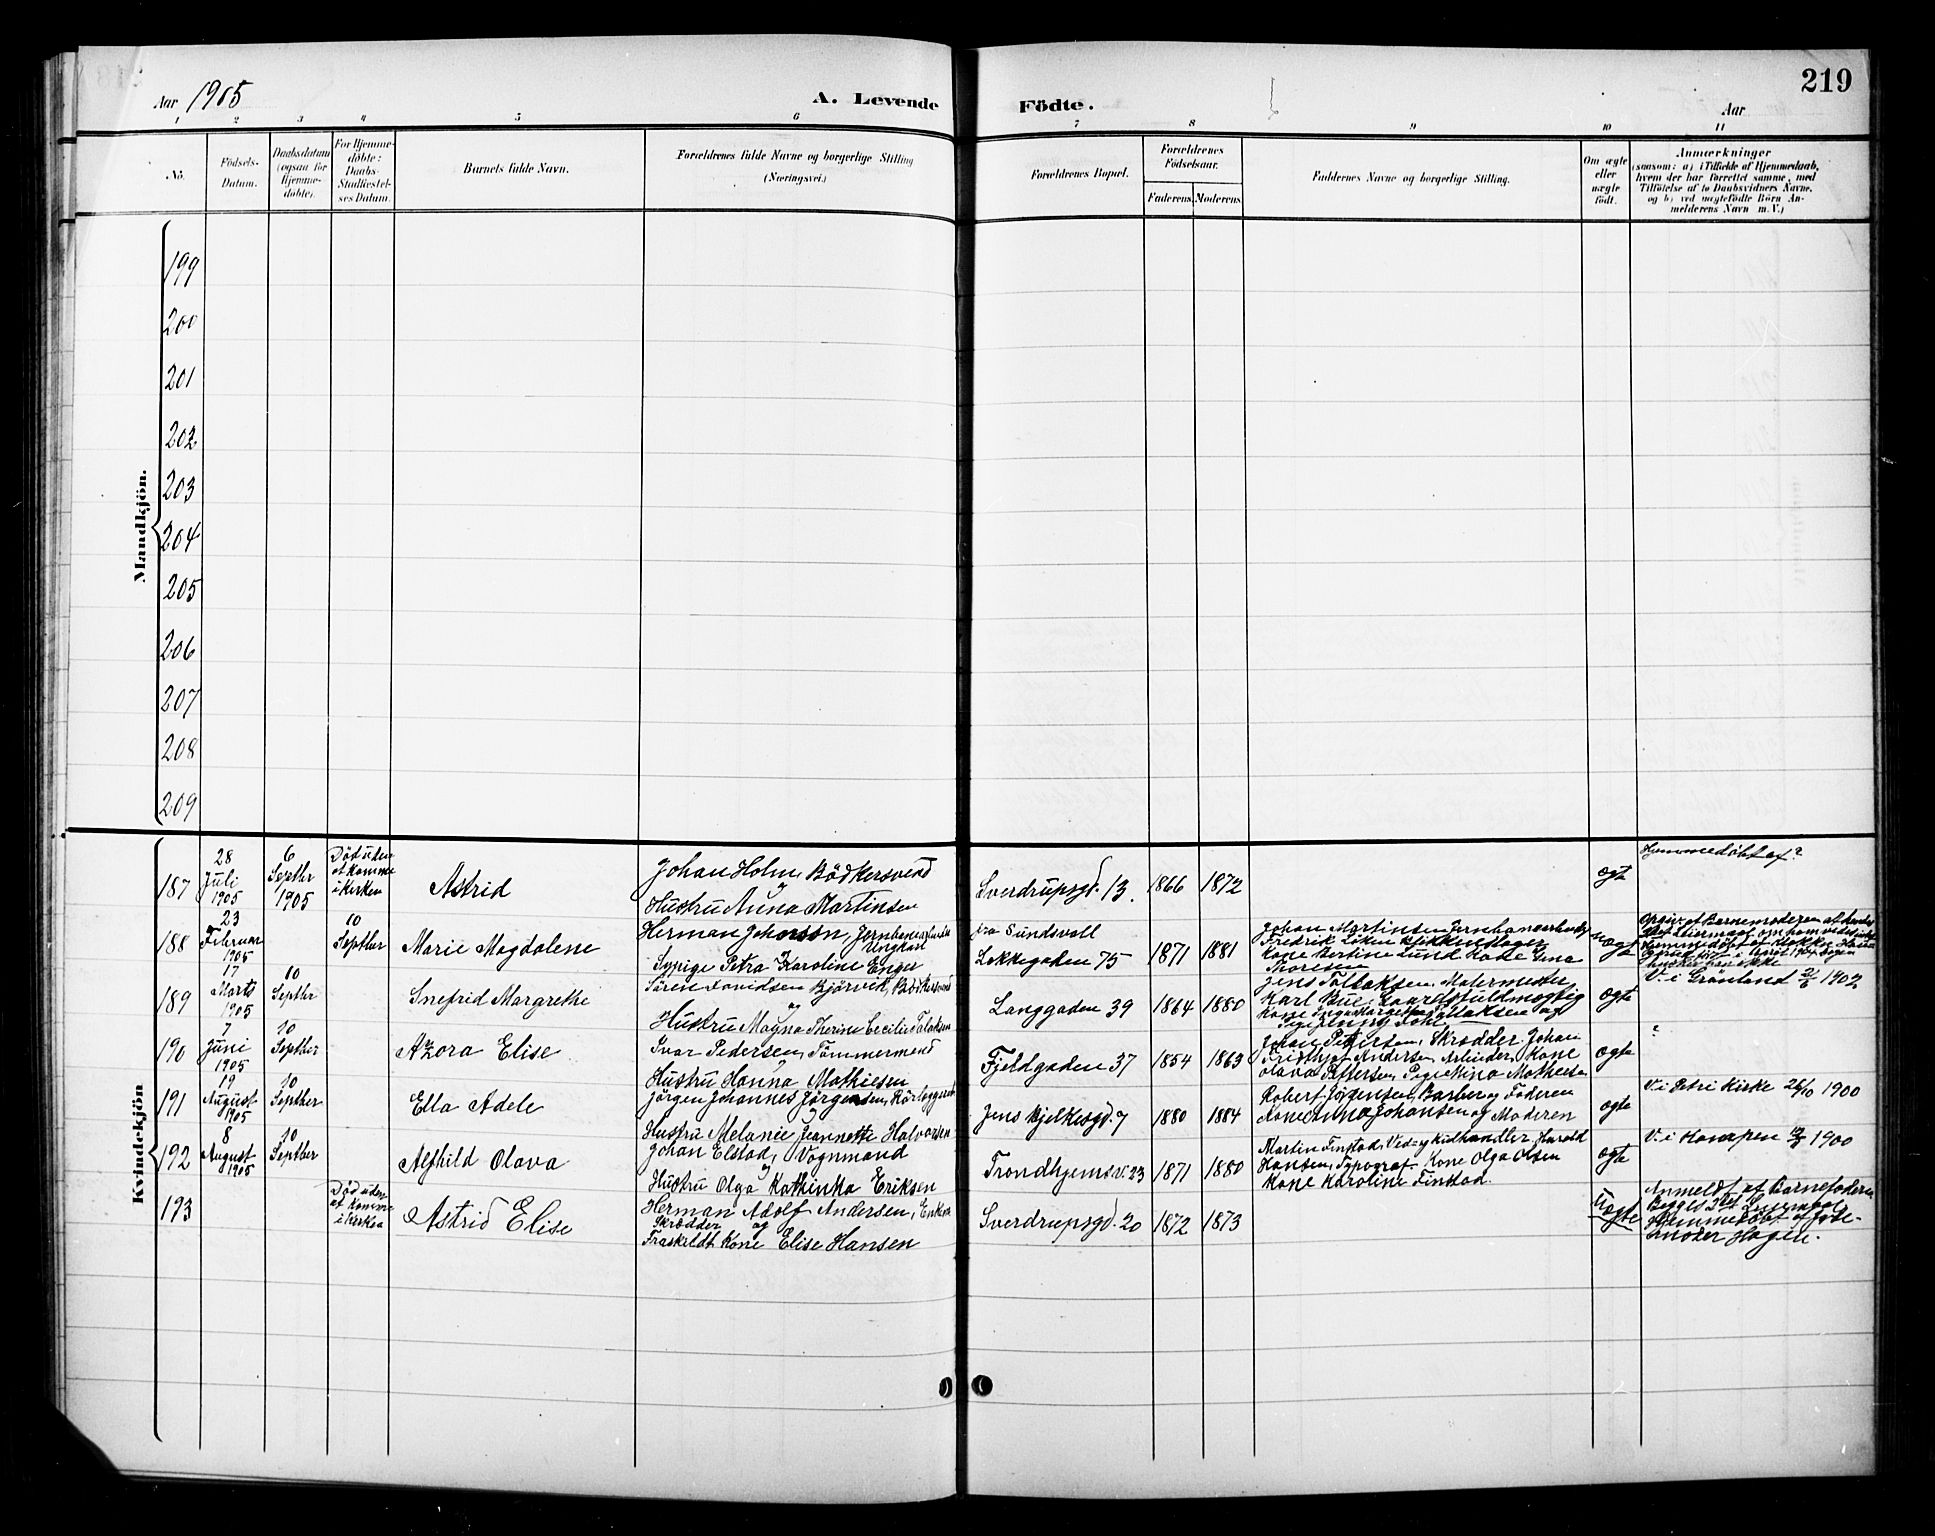 219
Aar 1905
A. Levende
Födte.
Aar
1 2 3 4 5 6 7 8 9 10 11
No.
Födsels-
Datum.
Daabsdatum
(ogsaa for
Hjemme-
døbte).
For Hjemme-
døbte:
Daabs-
Stadfæstel-
ses Datum.
Barnets fulde Navn.
Forældrenes fulde Navne og borgerlige Stilling
(Næringsvei.)
Forældrenes Bopæl.
Forældrenes
Födselsaar.
Faderens.
Moderens.
Faddernes Navne og borgerlige Stilling.
Om ægte
eller
uægte
født.
Anmærkninger
(saasom: a) i Tilfælde af Hjemmedaab,
hvem der har forrettet samme, med
Tilføielse af to Daabsvidners Navne,
og b) ved uægtefødte Börn An-
melderens Navn m. V.)
Mandkjön.
199
200
201
202
203
204
205
206
207
208
209
Kvindekjön
187
28
Juli
1905
6
Septbr
1905
Död uden
at komme
i Kirken
Astrid
Johan Holm, Bödkersvend
og
Hustru Anna Martinsen
Sverdrupsgd. 13.
1866
1872
ægte
Hjemmedöbt af?
188
23
Februar
1905
10
Septbr
Marie Magdalene
Herman Johnson, Jernbanearbeider
Ungkarl
Sypige Petra Karoline Enger
fra Sundsvall
Lökkegaden 75
1871
1881
Johan Martinsen Jernbanearbeider
Fredrik Löken Blikkenslager
Kone Bertine Lund Kone Lina
Thoresen
uægte
189
17
Marts
1905
10
Septbr
Snefrid Margrethe
Sören Davidsen Bjorvik, Bödkersvend
og
Hustru Magna Therine Cecilie Tollaksen
Langgaden 39
1864
1880
Jens Tollaksen, Malermester
Karl Bue,
Kone Inga Margrethe Tollaksen og
ægte
V. i Grönland 1902
190
7
Juni
1905
10
Septbr
Azora Elise
Ivar Pedersen, Tömmermand
Hustru Hanna Mathiesen
Fjeldgaden 37
1854
1863
Johan Petersen, Skrædder Johan
Fridthjof Andersen, Arbeider, Kone
Olava Pettersen, Pige Mina Mathiesen
ægte
?
191
19
August
1905
10
Septbr
Ella Adele
Jörgen Johannes Jörgensen,
og
Hustru Melanie Jeannette Halvorsen
Jens Bjelkesgd. 7
1880
1884
Robert Jörgensen, Barber og Faderen
Kone Anna Johansen og Moderen
ægte
V. i Petri Kirke 26/10 1900
192
8
August
1905
10
Septber
Alfhild Olava
Johan Elstad, Vognmand
og
Hustru Olga Kathinka Eriksen
Trondhjemsv. 23
1871
1880
Martin Finstad, Ved- og Kulhandler, Harald
Hansen, Typograf Kone Olga Olsen
Kone Karoline Finstad.
ægte
V. i Kampen 1900
193
Död uden
at komme
i Kirken
Astrid Elise
Herman Adolf Andersen, Enkem.
Skrædder og
Fraskildt Kone Elise Hansen
Sverdrupsgd. 20
1872
1873
Uægte
Anmeldt af Barnefaderen
Hjemmedöbt af Jorde-
moder Hagen.